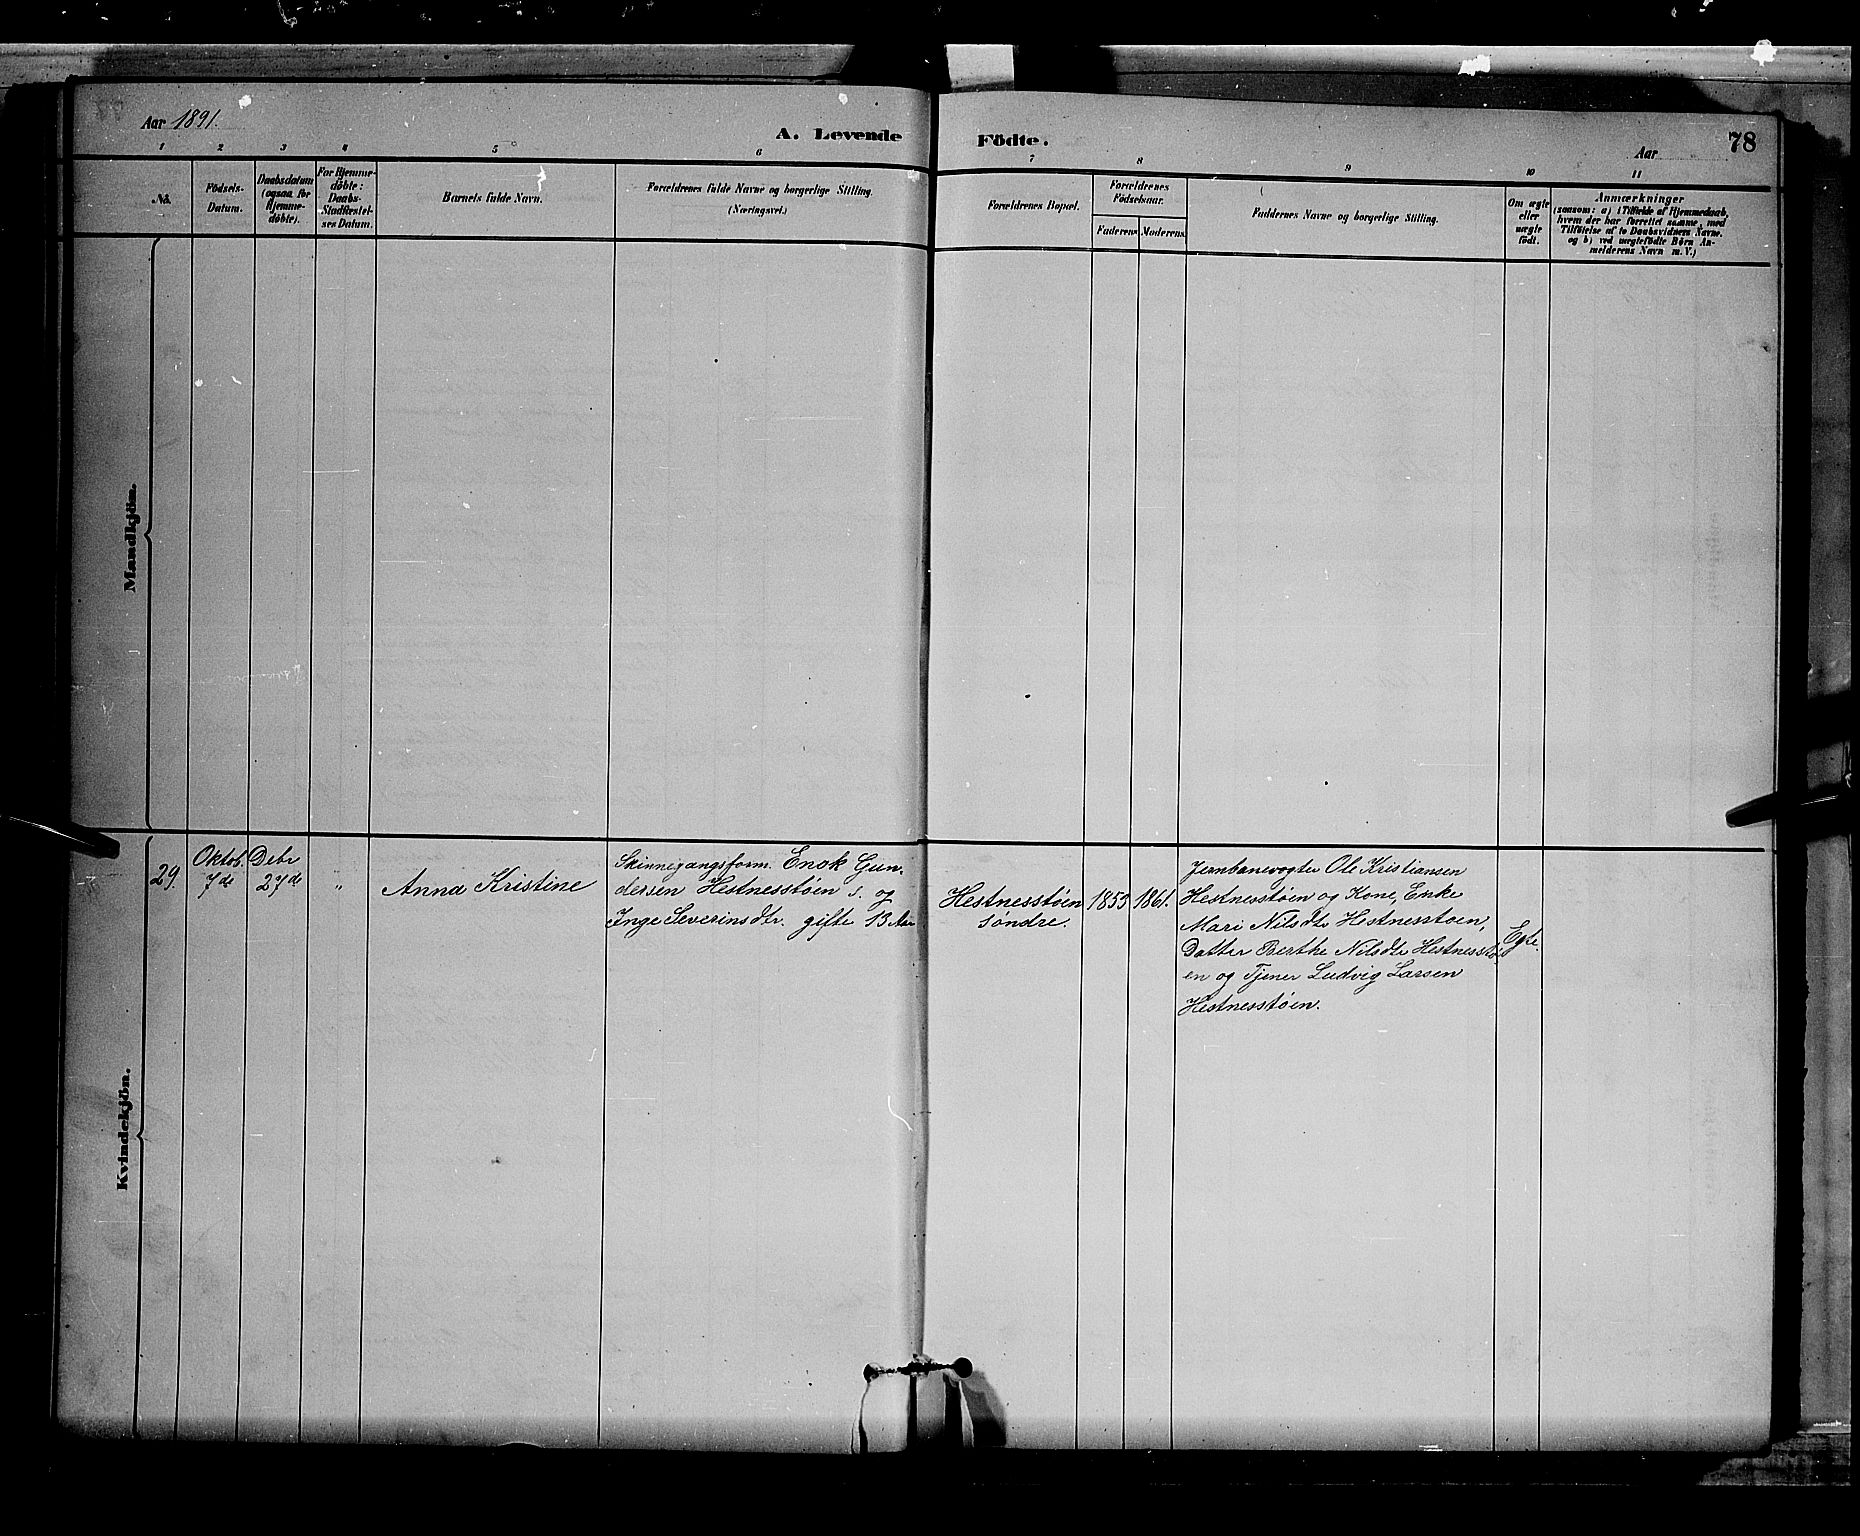 Aar 1891.
A. Levende Födte.
Aar
78
1
2
3
4
5
6
7
8
9
10
11
No.
Födsels-
Datum.
Daabsdatum
(ogsaa for
Hjemme-
döbte).
For Hjemme-
döbte:
Daabs-
Stadfæstel-
ses Datum.
Barnets fulde Navn.
Forældrenes fulde Navne og borgerlige Stilling.
(Næringsvei.)
Forældrenes Bopæl.
Forældrenes
Födselsaar.
Faderens
Moderens.
Faddernes Navne og borgerlige Stilling.
Om ægte
eller
uægte
födt.
Anmærkninger
(saasom: a) i Tilfælde af Hjemmedaab,
hvem der har forrettet samme, med
Tilföielse af to Daabsvidners Navne.
og b) ved uægtefödte Börn An-
melderens Navn m. V.)
Mandkjön.
Kvindekjön.
29.
Oktob.
7de
Debr
27de
"
Anna Kristine
Skinnegangsform. Enok Gun-
dersen Hestnesstøen s. og
Inge Severinsdtr. gifte 13 Aar
Hestnesstøen
søndre.
1853
1861.
Jernbanevogter Ole Kristiansen
Hestnesstøen og Kone, Enke
Mari Nilsdtr Hestnesstøen,
Datter Berthe Nilsdtr Hestnesstø
en og Tjener Ludvig Larsen
Hestnesstøen.
Egte.